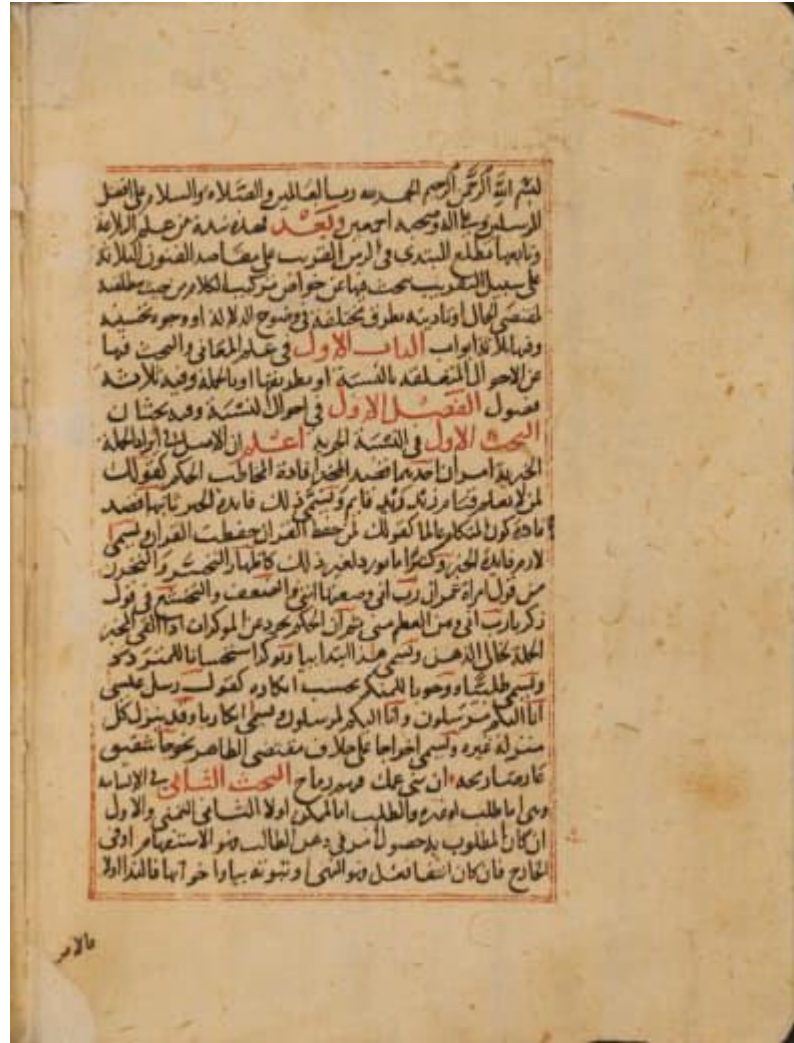 بسم الله الرحمن الرحيم الحمد لله رب العالمين والصلاة والسلام على افضل
المرسلين وعلى اله وصحبه اجمعين وبعد فهذه نبذة من علم البلاغة
وتابعها تطلع المبتدى في الزمن القريب على مقاصد الفنون الثلاثة
على سبيل التقريب يبحث فيها عن خواص تركيب الكلام من حيث مطابقته
لمقتضى الحال او تاديته بطرق مختلفة في وضوح الدلالة او وجوه تحسينه
وفيها ثلاثة ابواب الباب الاول في علم المعاني والبحث فيها
عن الاحوال المتعلقة بالنسبة او بطرفيها او بالجملة وفيه ثلاثة
فصول الفصل الاول في احوال النسبة وفيه بحثان
البحث الاول في النسبة الخبرية اعلم ان الاصل في ايراد الجملة
الخبرية امران احدهما قصد المخبر افادة المخاطب الحكم كقولك
لمن لا يعلم قيام زيد زيد قايم ويسمى ذلك فايدة الخبر ثانيها قصد
افادة كون المتكلم عالما كقولك لمن حفظ القران حفظت القران ويسمى
لازم فايدة الخبر وكثيرا ما يورد لغير ذلك كاظهار التحسر والتحزن
من قول امراة عمران رب اني وضعتها انثى والضعف والتخشع في قول
زكريا رب اني وهن العظم مني ثم ان الحكم يجرد عن الموكدات اذا القى المخبر
الجملة لخالي الذهن ويسمى هذا ابتدايا ويوكد استحسانا للمتردد
ويسمى طلبيا ووجوبا للمنكر بحسب انكاره كقول رسل عيسى
انا اليكم مرسلون وانا اليكم لمرسلون ويسمى انكاريا وقد ينزل كل
منزلة غيره ويسمى اخراجا على خلاف مقتضى الظاهر نحو جا شقيق
عارضا رمحه ان بني عمك فيهم رماح البحث الثاني في الانشاية
وهى اما طلب او غيره والطلب اما لممكن او لا الثاني التمني والاول
ان كان المطلوب به حصول امر في ذهن الطالب فهو الاستفهام او في
الخارج فان كان انتفا فعل فهو النهى او ثبوته بيا واخواتها فالندا اولا
فالامر